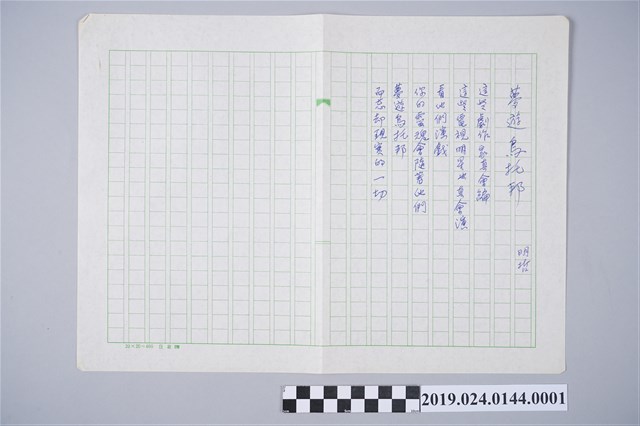 夢遊烏托邦
明哲
這些劇作家真會編
這些電視明星也真會演
看他們演戲
你的靈魂會隨著他們
夢遊烏托邦
而忘却現實的一切
2019.024.0144.0001